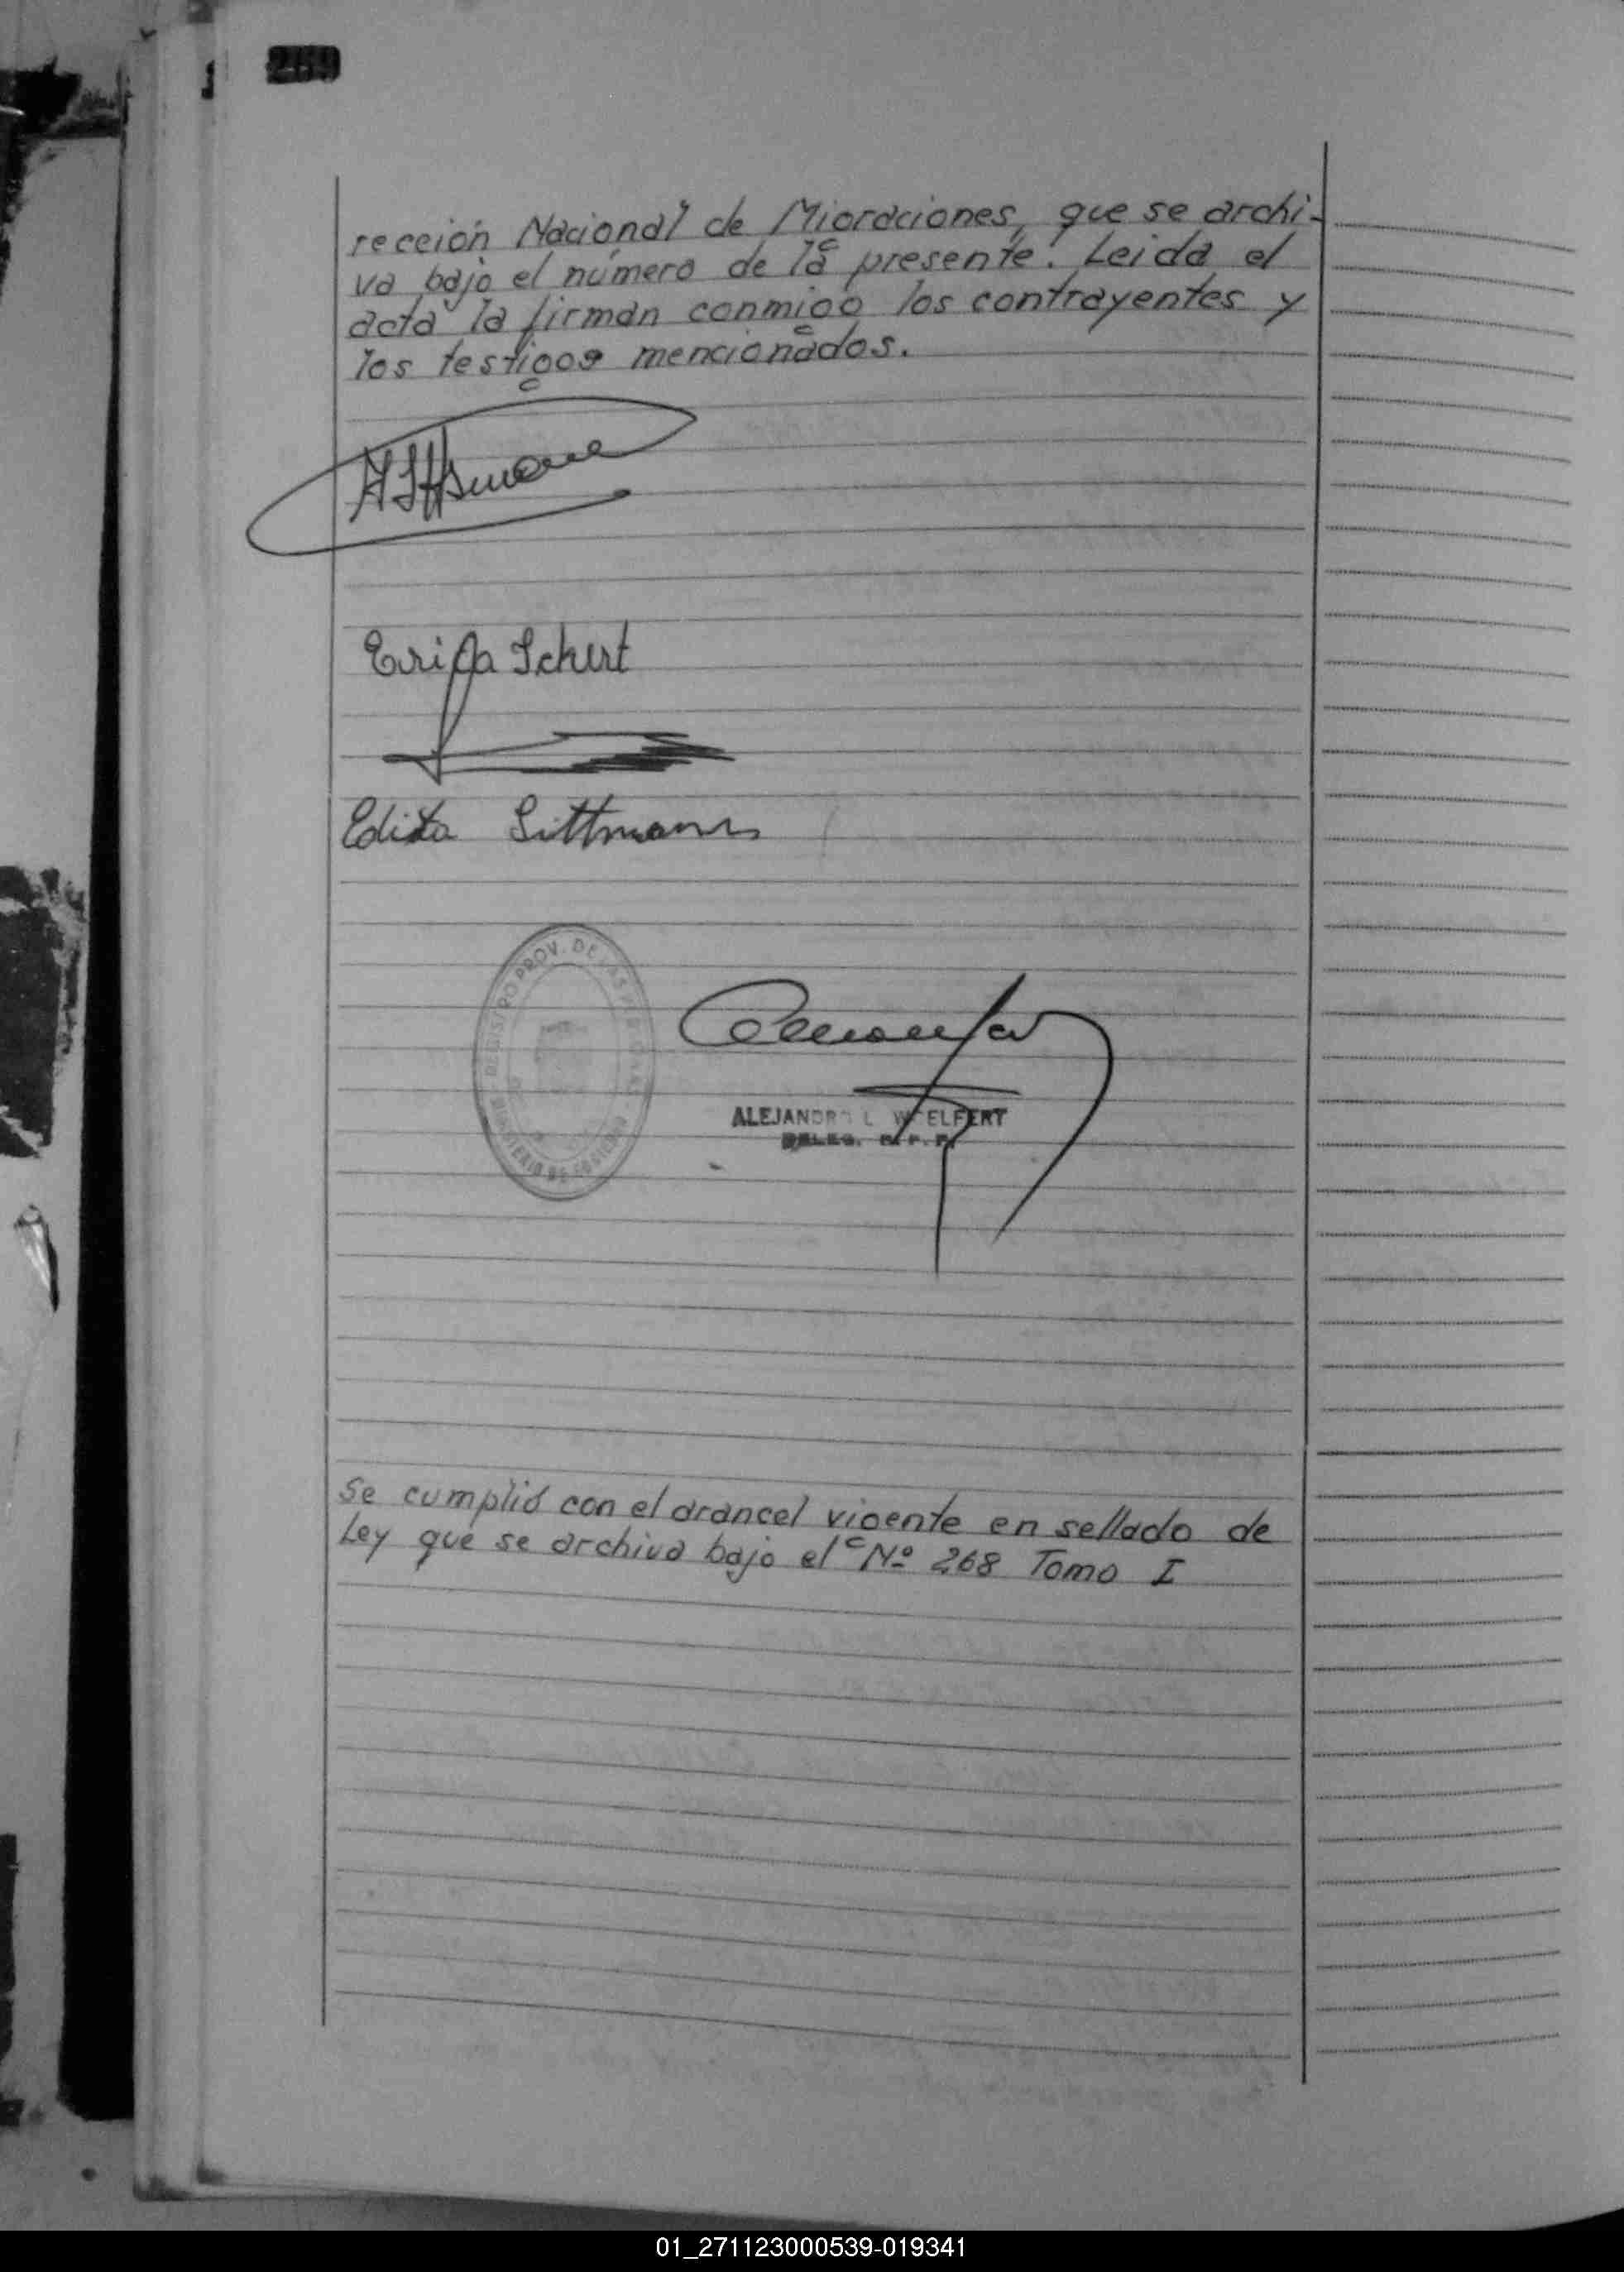 269
rección Nacional de Migraciones, que se archi-
va bajo el número de la presente. Leida el
acta la firman conmigo los contrayentes y
los testigos mencionados.
Erica Schert
Edita Littmann
REGISTRO PROV. DE LAS PERSONAS
MINISTERIO DE GOBIERNO
ALEJANDRO L. WOELFERT
DELEG. R. P. P.
Se cumplió con el arancel vigente en sellado de
Ley que se archiva bajo el Nº 268 Tomo I
01_271123000539-019341